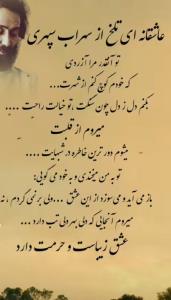 عاشقانه ای تلخ از سهراب سپهری
تو آنقدر مرا آزردی
که خودم کوچ کنم از شهرت...
بکنم دل ز دل چون سنگت ،تو خیالت راحت ....
میروم از قلبت
میشوم دور ترین خاطره در شبهایت ....
تو به من میخندی و به خود می گویی:
باز می آید و می سوزد از این عشق ...ولی بر نمی گردم ، نه
میروم آنجایی که دلی بهر دلی تب دارد ...
عشق زیباست و حرمت دارد